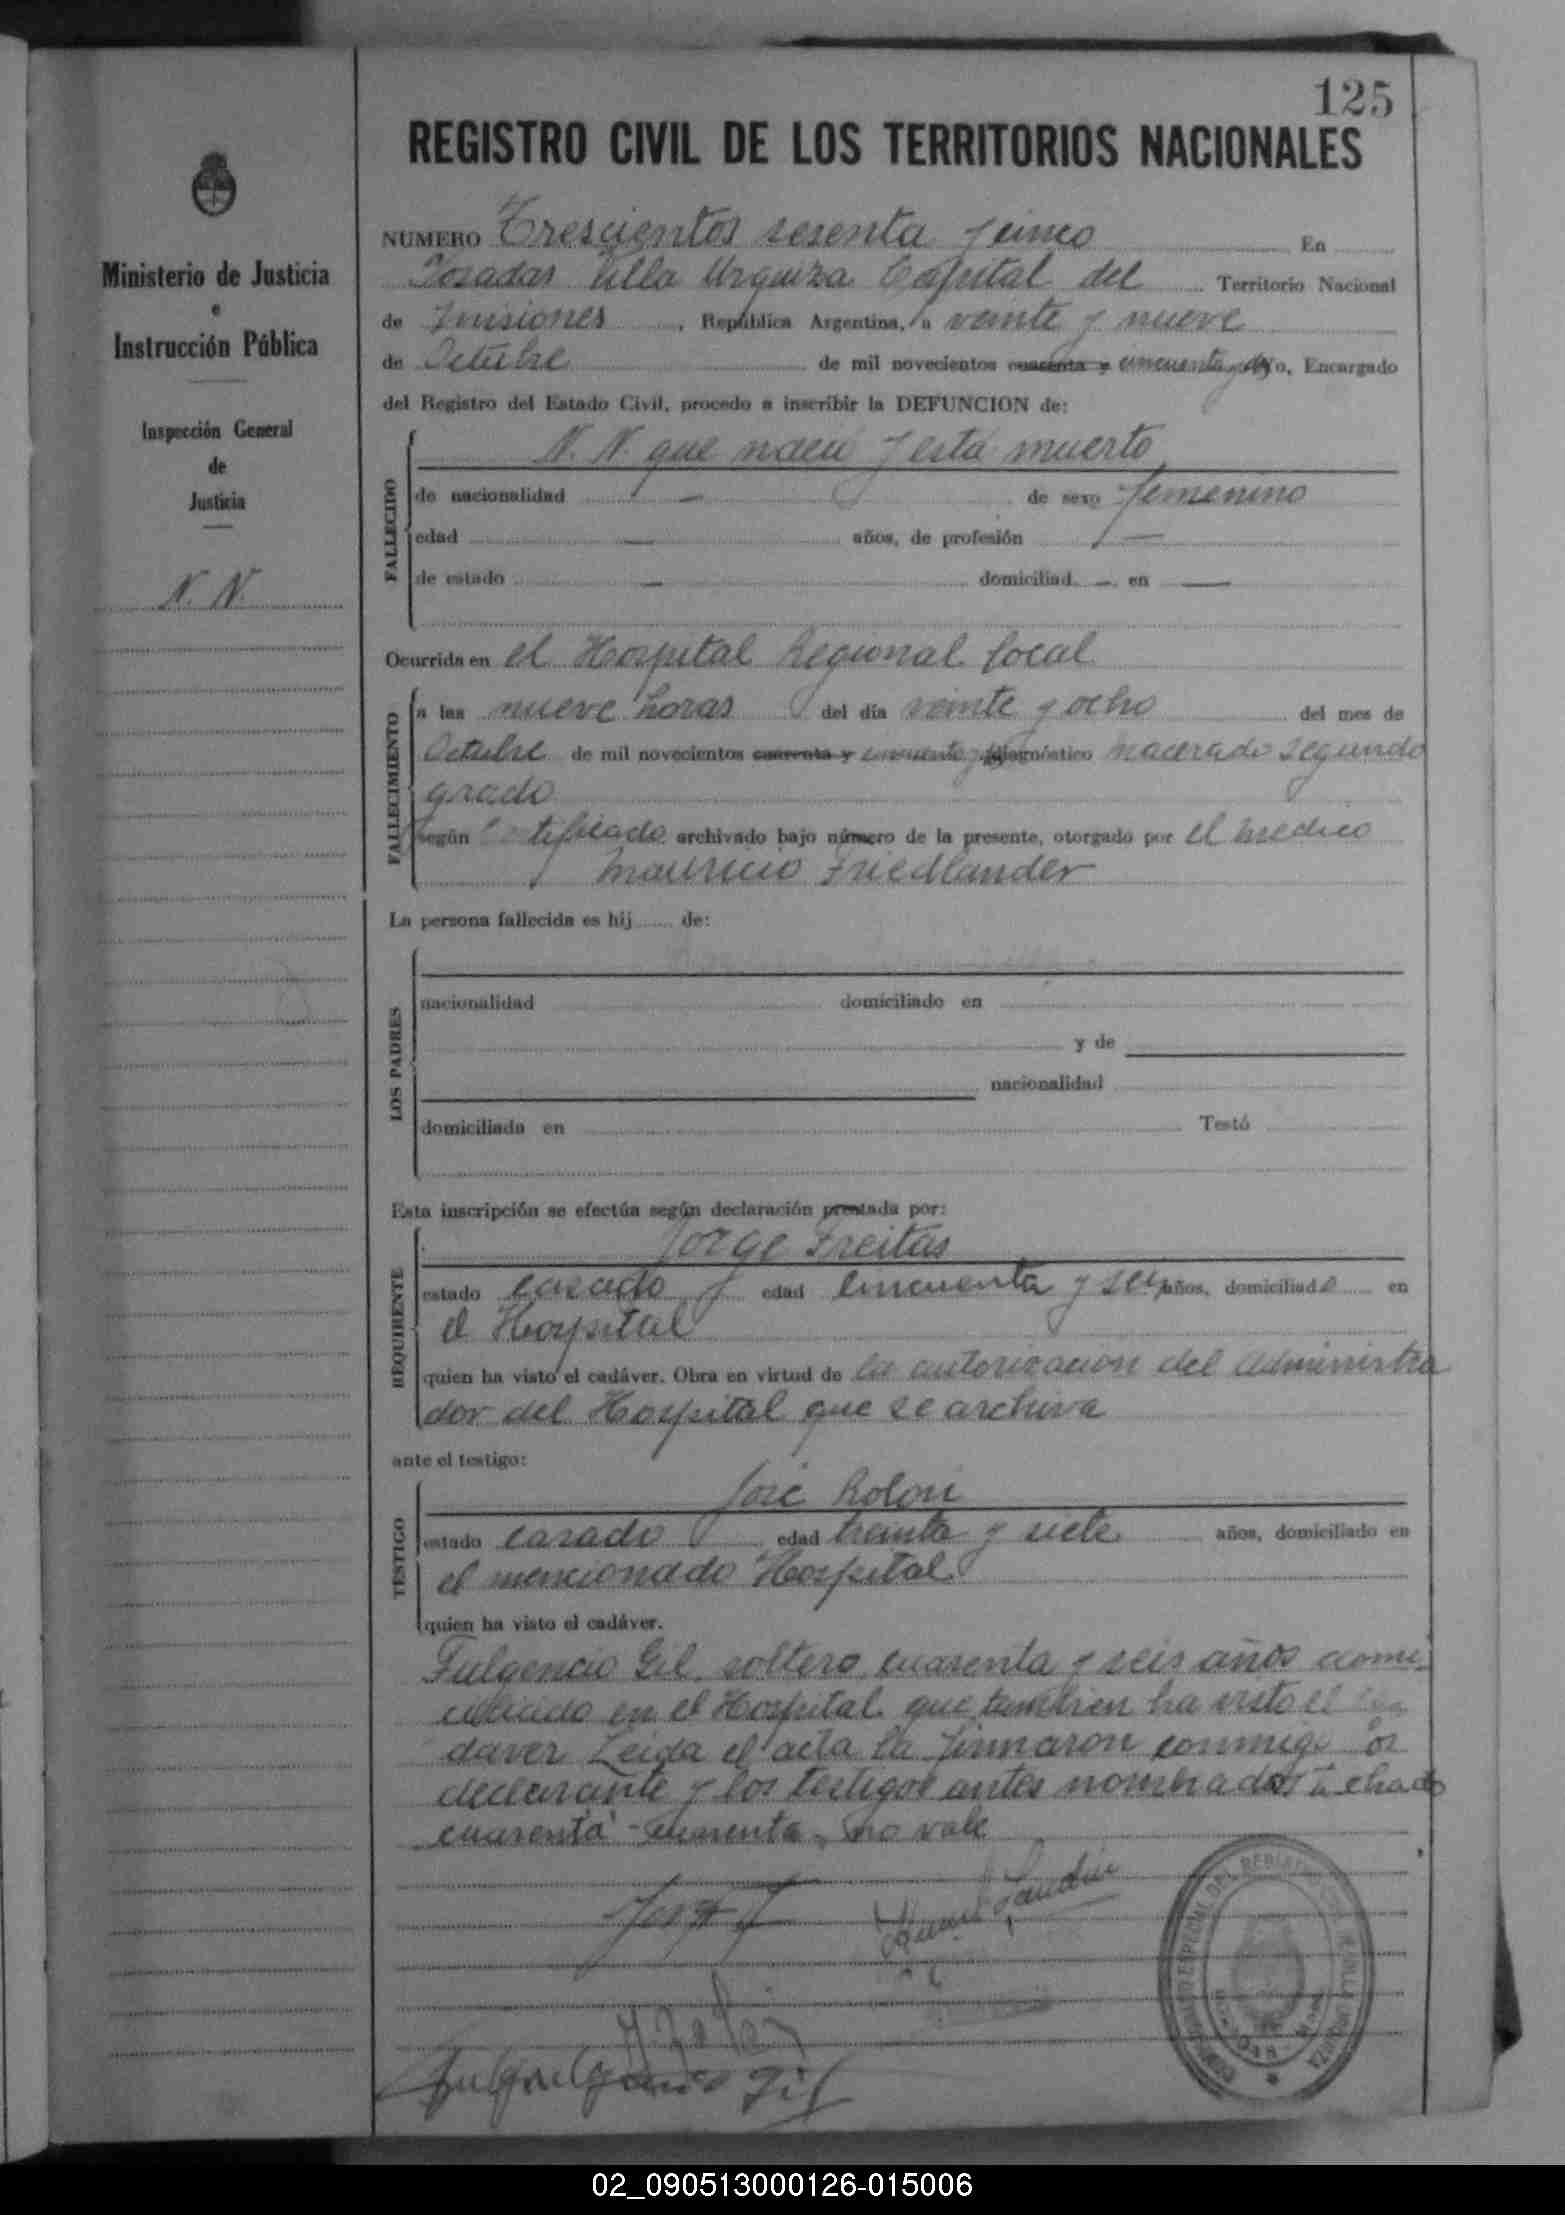 125
REGISTRO CIVIL DE LOS TERRITORIOS NACIONALES
Ministerio de Justicia
e
Instrucción Pública
Inspección General
de
Justicia
N. N.
NUMERO Trescientos sesenta y cinco En
Posadas Villa Urquiza Capital del Territorio Nacional
de Misiones, República Argentina, a veinte y nueve
de Octubre de mil novecientos cuarenta y cincuenta y yo, Encargado
del Registro del Estado Civil, procedo a inscribir la DEFUNCION de:
FALLECIDO
N. N. que nació y está muerto
de nacionalidad — de sexo femenino
edad — años, de profesión —
de estado — domiciliad — en —
Ocurrida en el Hospital Regional local
FALLECIMIENTO
a las nueve horas del día veinte y ocho del mes de
Octubre de mil novecientos cuarenta y cincuenta y diagnóstico macerado segundo
grado
según Certificado archivado bajo número de la presente, otorgado por el medico
Mauricio Friedlander
La persona fallecida es hij de:
LOS PADRES
nacionalidad domiciliado en
y de
nacionalidad
domiciliada en Testó
Esta inscripción se efectúa según declaración prestada por:
REQUIRENTE
Jorge Freitas
estado casado edad cincuenta y seis años, domiciliado en
el Hospital
quien ha visto el cadáver. Obra en virtud de la autorizacion del administra
dor del Hospital que se archiva
ante el testigo:
TESTIGO
José Rolon
estado casado edad treinta y siete años, domiciliado en
el mencionado Hospital
quien ha visto el cadáver.
Fulgencio Gil, soltero, cuarenta y seis años domi-
ciliado en el Hospital que tambien ha visto el ca
daver Leida el acta la firmaron conmigo
declarante y los testigos antes nombrados
cuarenta - cuarenta, no vale
Gil
02_090513000126-015006